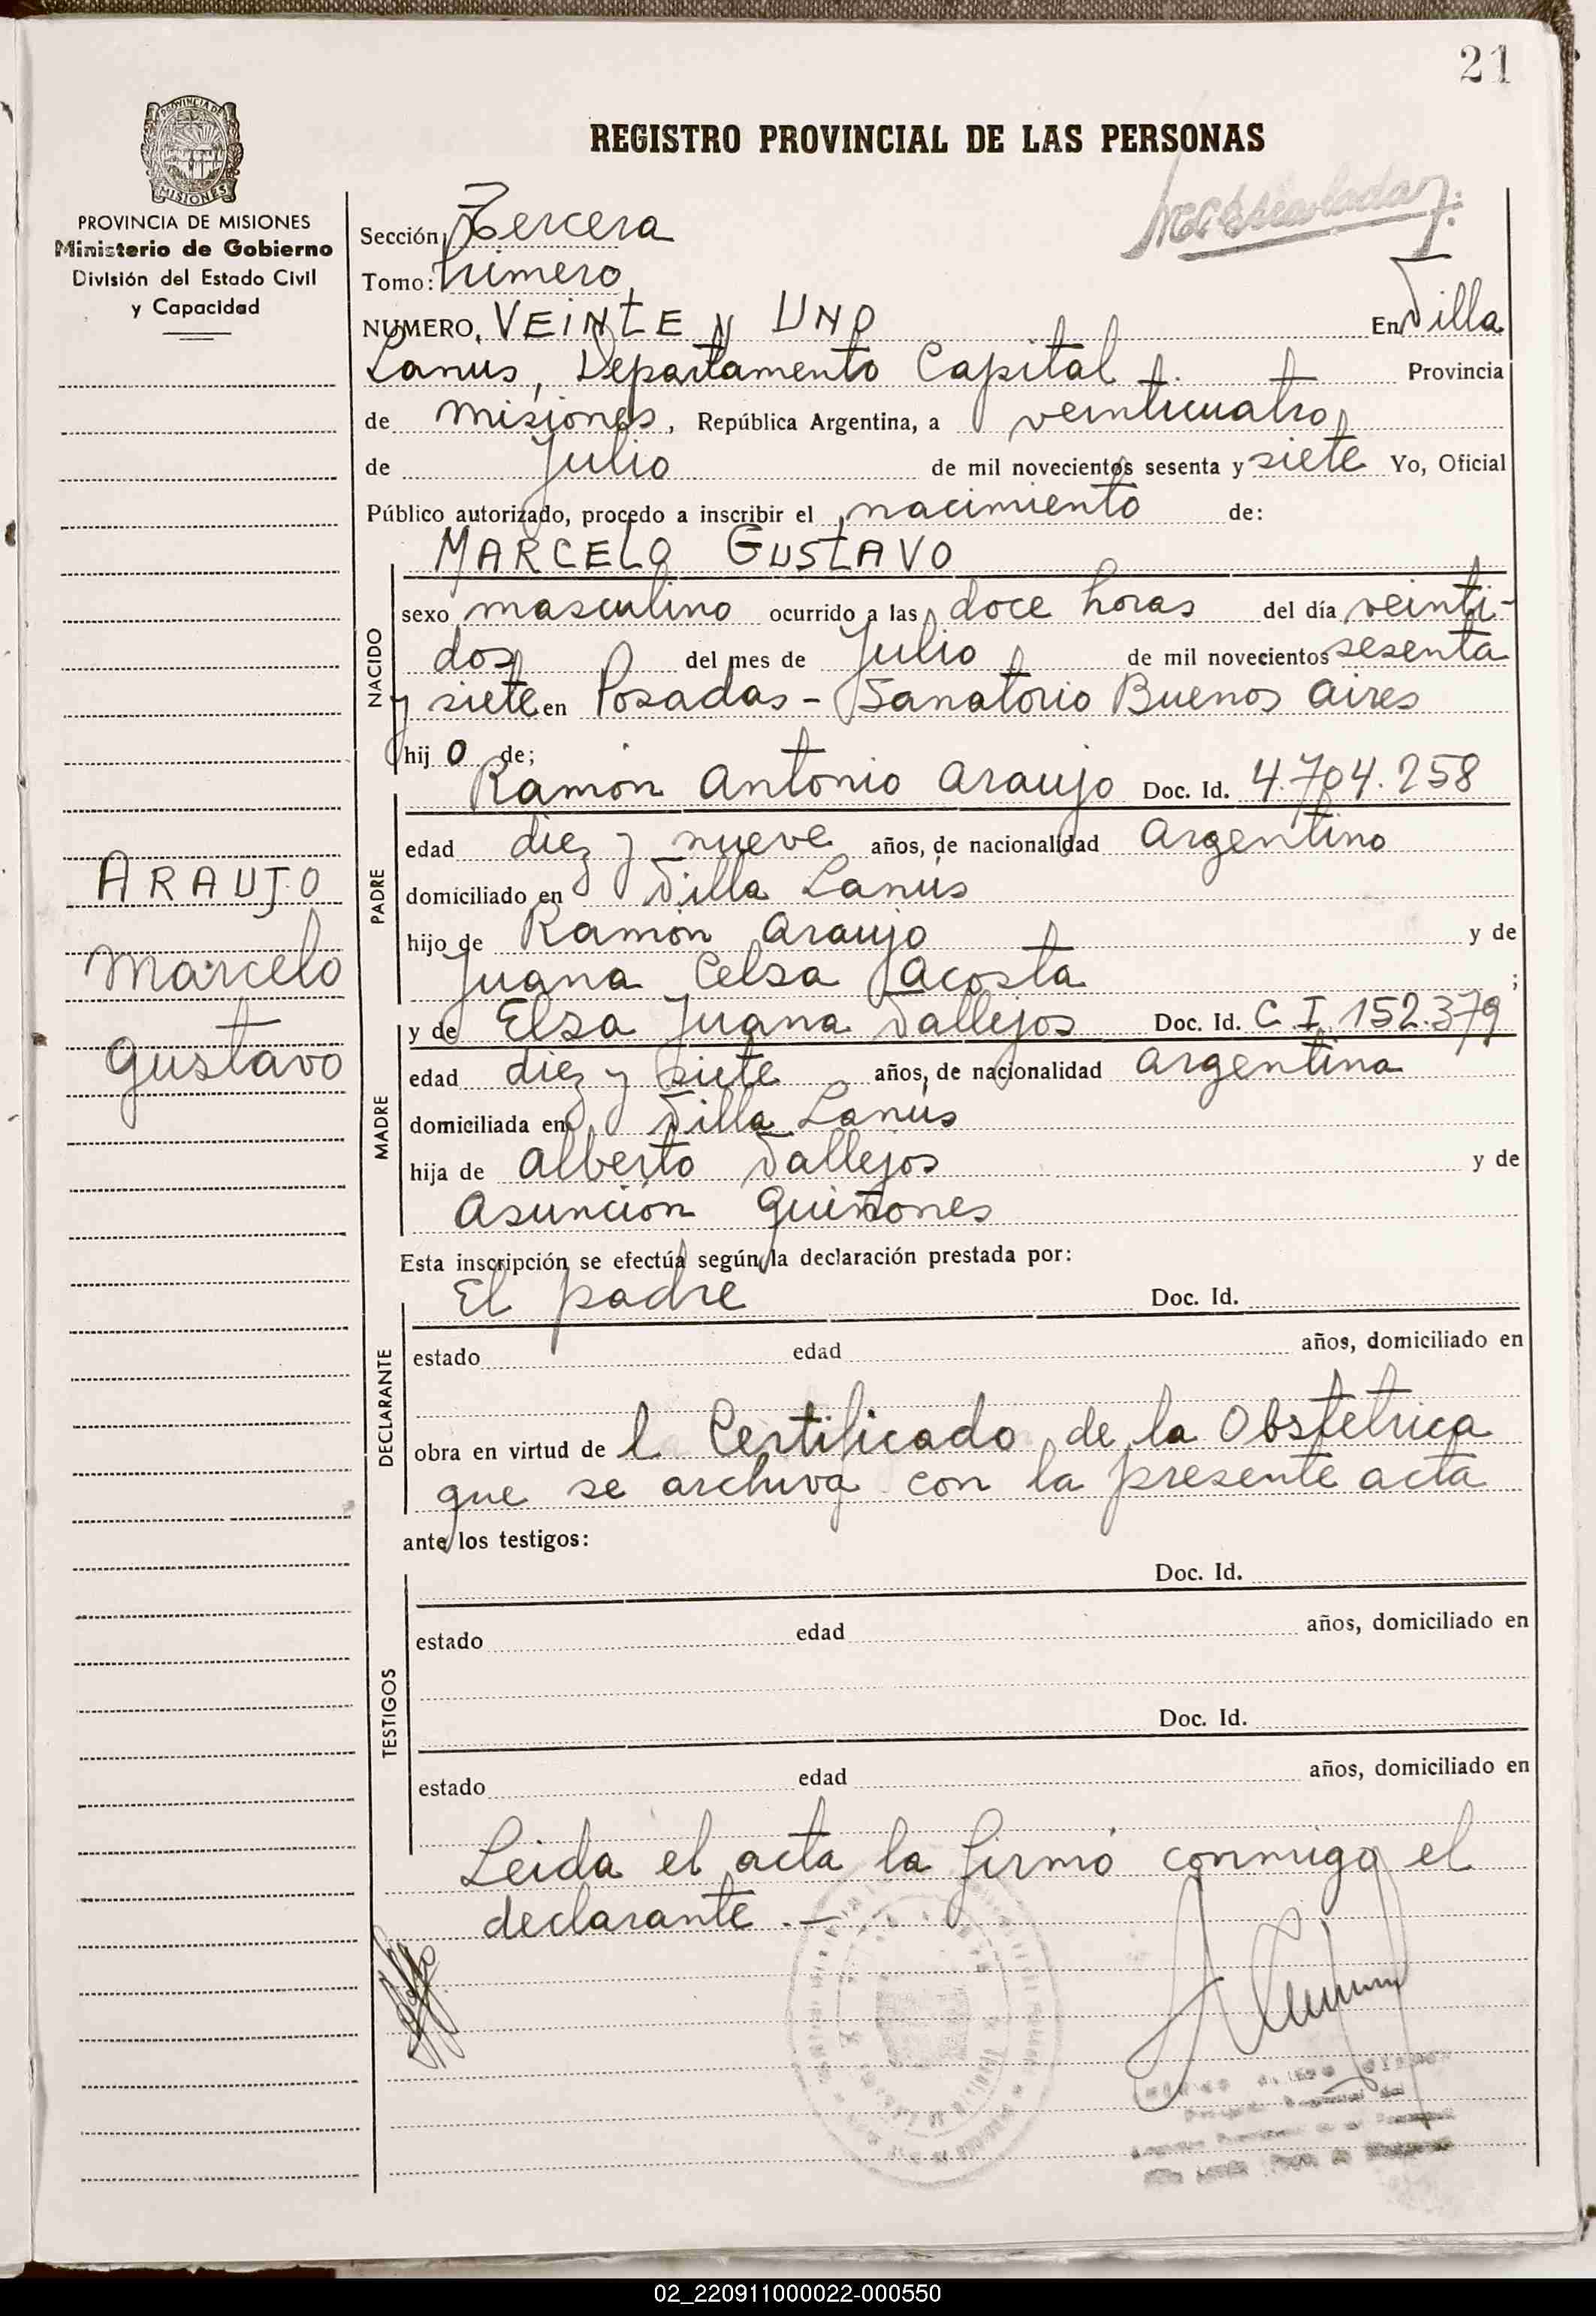 21
PROVINCIA DE
MISIONES
PROVINCIA DE MISIONES
Ministerio de Gobierno
División del Estado Civil
y Capacidad
REGISTRO PROVINCIAL DE LAS PERSONAS
Sección Tercera
Tomo: Primero
NUMERO, VEINTE y UNO En Villa
Lanus, Departamento Capital Provincia
de Misiones, República Argentina, a veinticuatro
de Julio de mil novecientos sesenta y siete Yo, Oficial
Público autorizado, procedo a inscribir el nacimiento de:
MARCELO GUSTAVO
NACIDO
sexo masculino ocurrido a las doce horas del día veinti-
dos del mes de Julio de mil novecientos sesenta
y siete en Posadas - Sanatorio Buenos Aires
hijo de;
Ramón Antonio Araujo Doc. Id. 4.704.258
PADRE
edad diez y nueve años, de nacionalidad Argentino
domiciliado en Villa Lanús
hijo de Ramón Araujo y de
Juana Celsa Acosta ;
y de Elsa Juana Vallejos Doc. Id. C I 152.379
MADRE
edad diez y siete años, de nacionalidad Argentina
domiciliada en Villa Lanús
hija de Alberto Vallejos y de
Asunción Quiñones
ARAUJO
Marcelo
Gustavo
Esta inscripción se efectúa según la declaración prestada por:
El padre Doc. Id.
DECLARANTE
estado edad años, domiciliado en
obra en virtud del Certificado de la Obstetrica
que se archiva con la presente acta
ante los testigos:
TESTIGOS
Doc. Id.
estado edad años, domiciliado en
Doc. Id.
estado edad años, domiciliado en
Leida el acta la firmó conmigo el
declarante.-
02_220911000022-000550